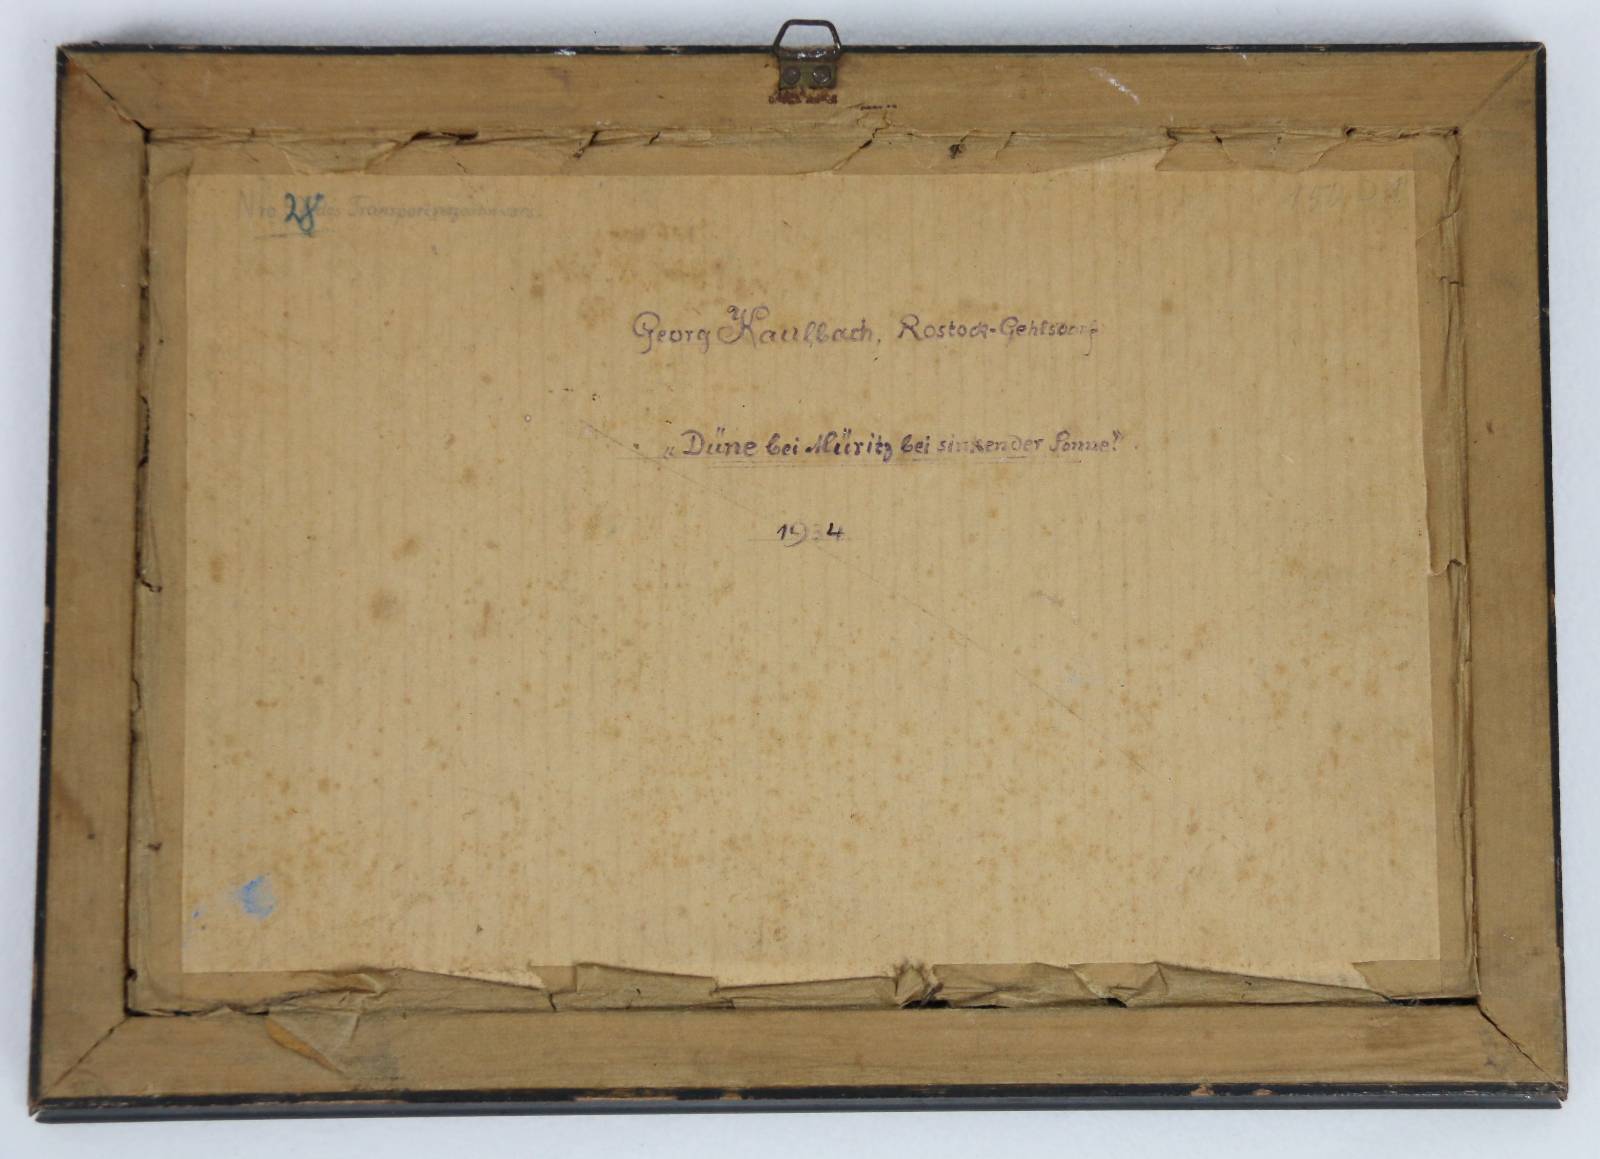 Nro 28 des Transportverzeichnisses.
Georg Kaulbach, Rostock-Gehlsdorf
„Düne bei Müritz bei sinkender Sonne“.
1934.